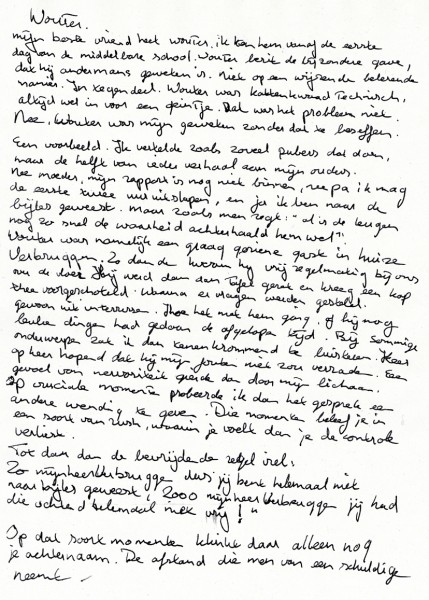 Wouter.
mijn beste vriend heet wouter. ik ken hem vanaf de eerste
dag van de middelbare school. wouter bezit de bijzondere gave,
dat hij andermans geweten is. Niet op een wijzende belerende
manier. In tegendeel. Wouter was kattenkwaad technisch,
altijd wel in voor een geintje. Dat was het probleem niet.
Nee, Wouter was mijn geweten zonder dat te beseffen.
Een voorbeeld. Ik vertelde zoals zoveel pubers dat doen,
maar de helft van ieder verhaal aan mijn ouders.
Nee moeder, mijn rapport is nog niet binnen, nee pa ik mag
de eerste twee uur uitslapen, en ja ik ben naar de
bijles geweest. maar zoals men zegt: "al is de leugen
nog zo snel de waarheid achterhaald hem wel".
Wouter was namelijk een graag geziene gast in huize
Verbruggen. Zo dan de kwam hij vrij regelmatig bij ons
over de vloer. Hij werd dan aan tafel gezet en kreeg een kop
thee voorgeschoteld. Waarna er vragen werden gesteld.
gewoon uit interesse. Hoe het met hem ging, of hij nog
leuke dingen had gedaan de afgelopen tijd. Bij sommige
onderwerpen zat ik dan tenenkrommend te luisteren. Hoog
op heer hopend dat hij mijn fouten niet zou verraden. Een
gevoel van nervositeit gierde dan door mijn lichaam.
Op cruciale momenten probeerde ik dan het gesprek een
andere wending te geven. Die momenten beleef je in
een soort van rush, waarin je voelt dan je de controle
verliest.
Tot dan dan de bevrijdende zegel viel:
Zo mijnheer Verbrugge dus jij bent helemaal niet
naar bijles geweest! Zooo mijnheer Verbrugge jij had
die ochtend helemaal niet vrij!"
Op dat soort momenten klinkt daar alleen nog
je achternaam. De afstand die men van een schuldige
neemt –